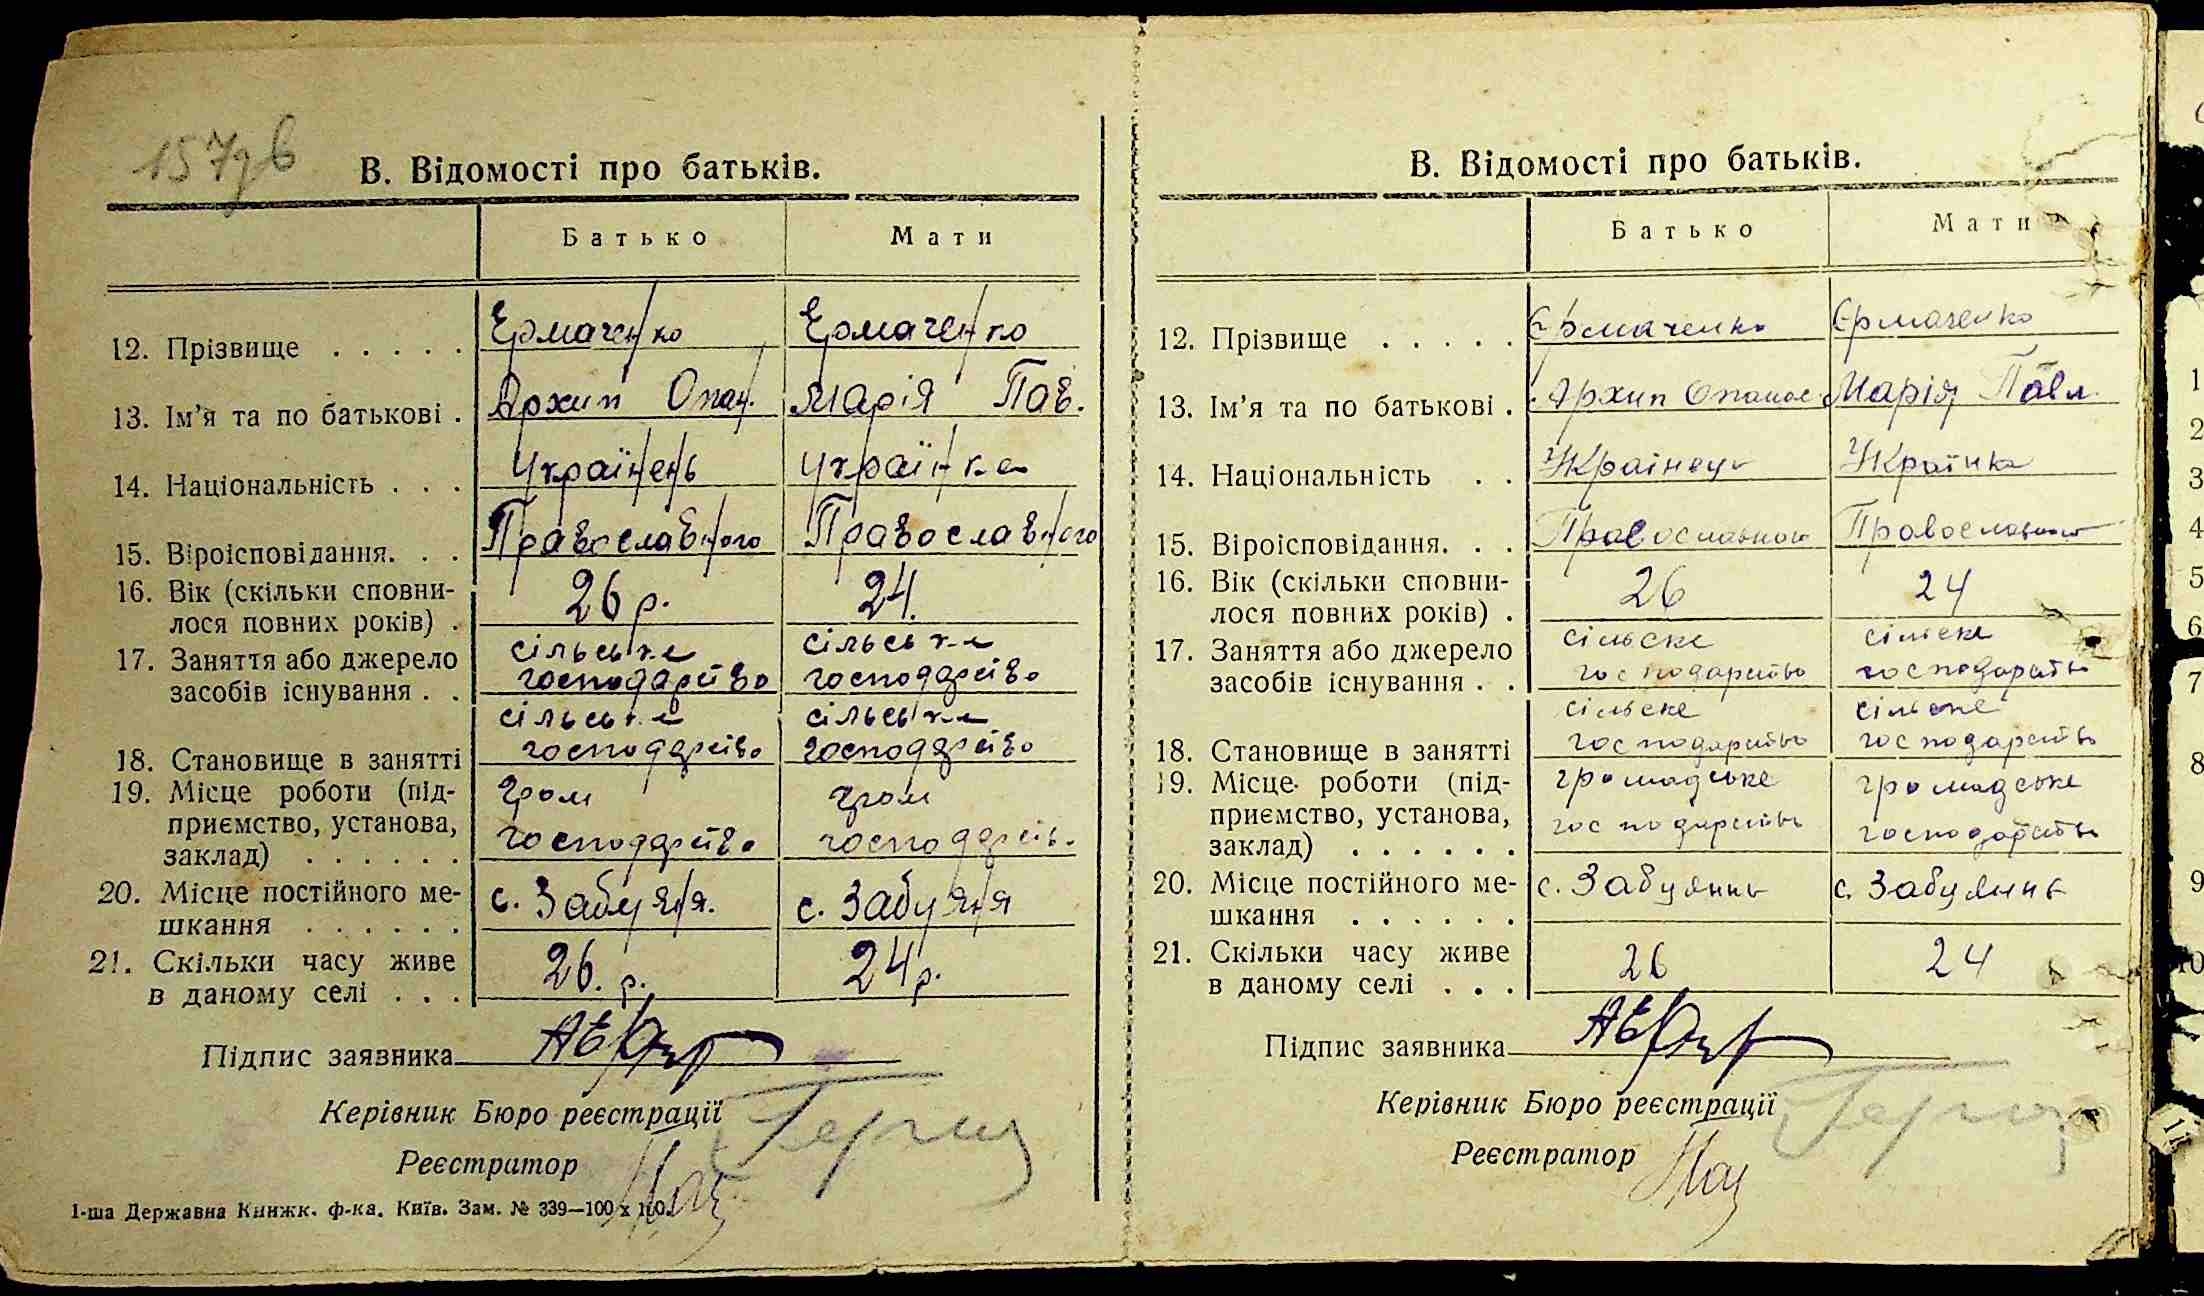 157зв
В. Відомості про батьків.
Батько Мати
12. Прізвище . . . . . Ермаченко Ермаченко
13. Ім'я та по батькові . Архип Опан. Марія Пав.
14. Національність . . . Українень Українка
15. Віроісповідання. . . Православного Православного
16. Вік (скільки сповни-
лося повних років) . 26 р. 24.
17. Заняття або джерело сільське сільське
засобів існування . . господарство господарство
сільське сільське
18. Становище в занятті господарство господарство
19. Місце роботи (під- гром гром
приємство, установа,
заклад) . . . . . . господарство господарств.
20. Місце постійного ме- с. Забуяня. с. Забуяня
шкання . . . . . .
21. Скільки часу живе 26. р. 24 р.
в даному селі . . .
Підпис заявника
Керівник Бюро реєстрації
Реєстратор
1-ша Державна Книжк. ф-ка. Київ. Зам. № 339—100 х 100.
В. Відомості про батьків.
Батько Мати
12. Прізвище . . . . . Єрмаченко Єрмаченко
13. Ім'я та по батькові . Архип Опанас. Марія Павл.
14. Національність . . Українець Українка
15. Віроісповідання. . . Православного Православного
16. Вік (скільки сповни-
лося повних років) . 26 24
17. Заняття або джерело сільске сільске
засобів існування . . господарство господарство
сільске сільске
18. Становище в занятті господарство господарство
19. Місце роботи (під- громадське громадське
приємство, установа,
заклад) . . . . . . господарство господарство
20. Місце постійного ме- с. Забуяннь с. Забуяннь
шкання . . . . . .
21. Скільки часу живе 26 24
в даному селі . . .
Підпис заявника
Керівник Бюро реєстрації
Реєстратор
1
2
3
4
5
6
7
8
9
10
11